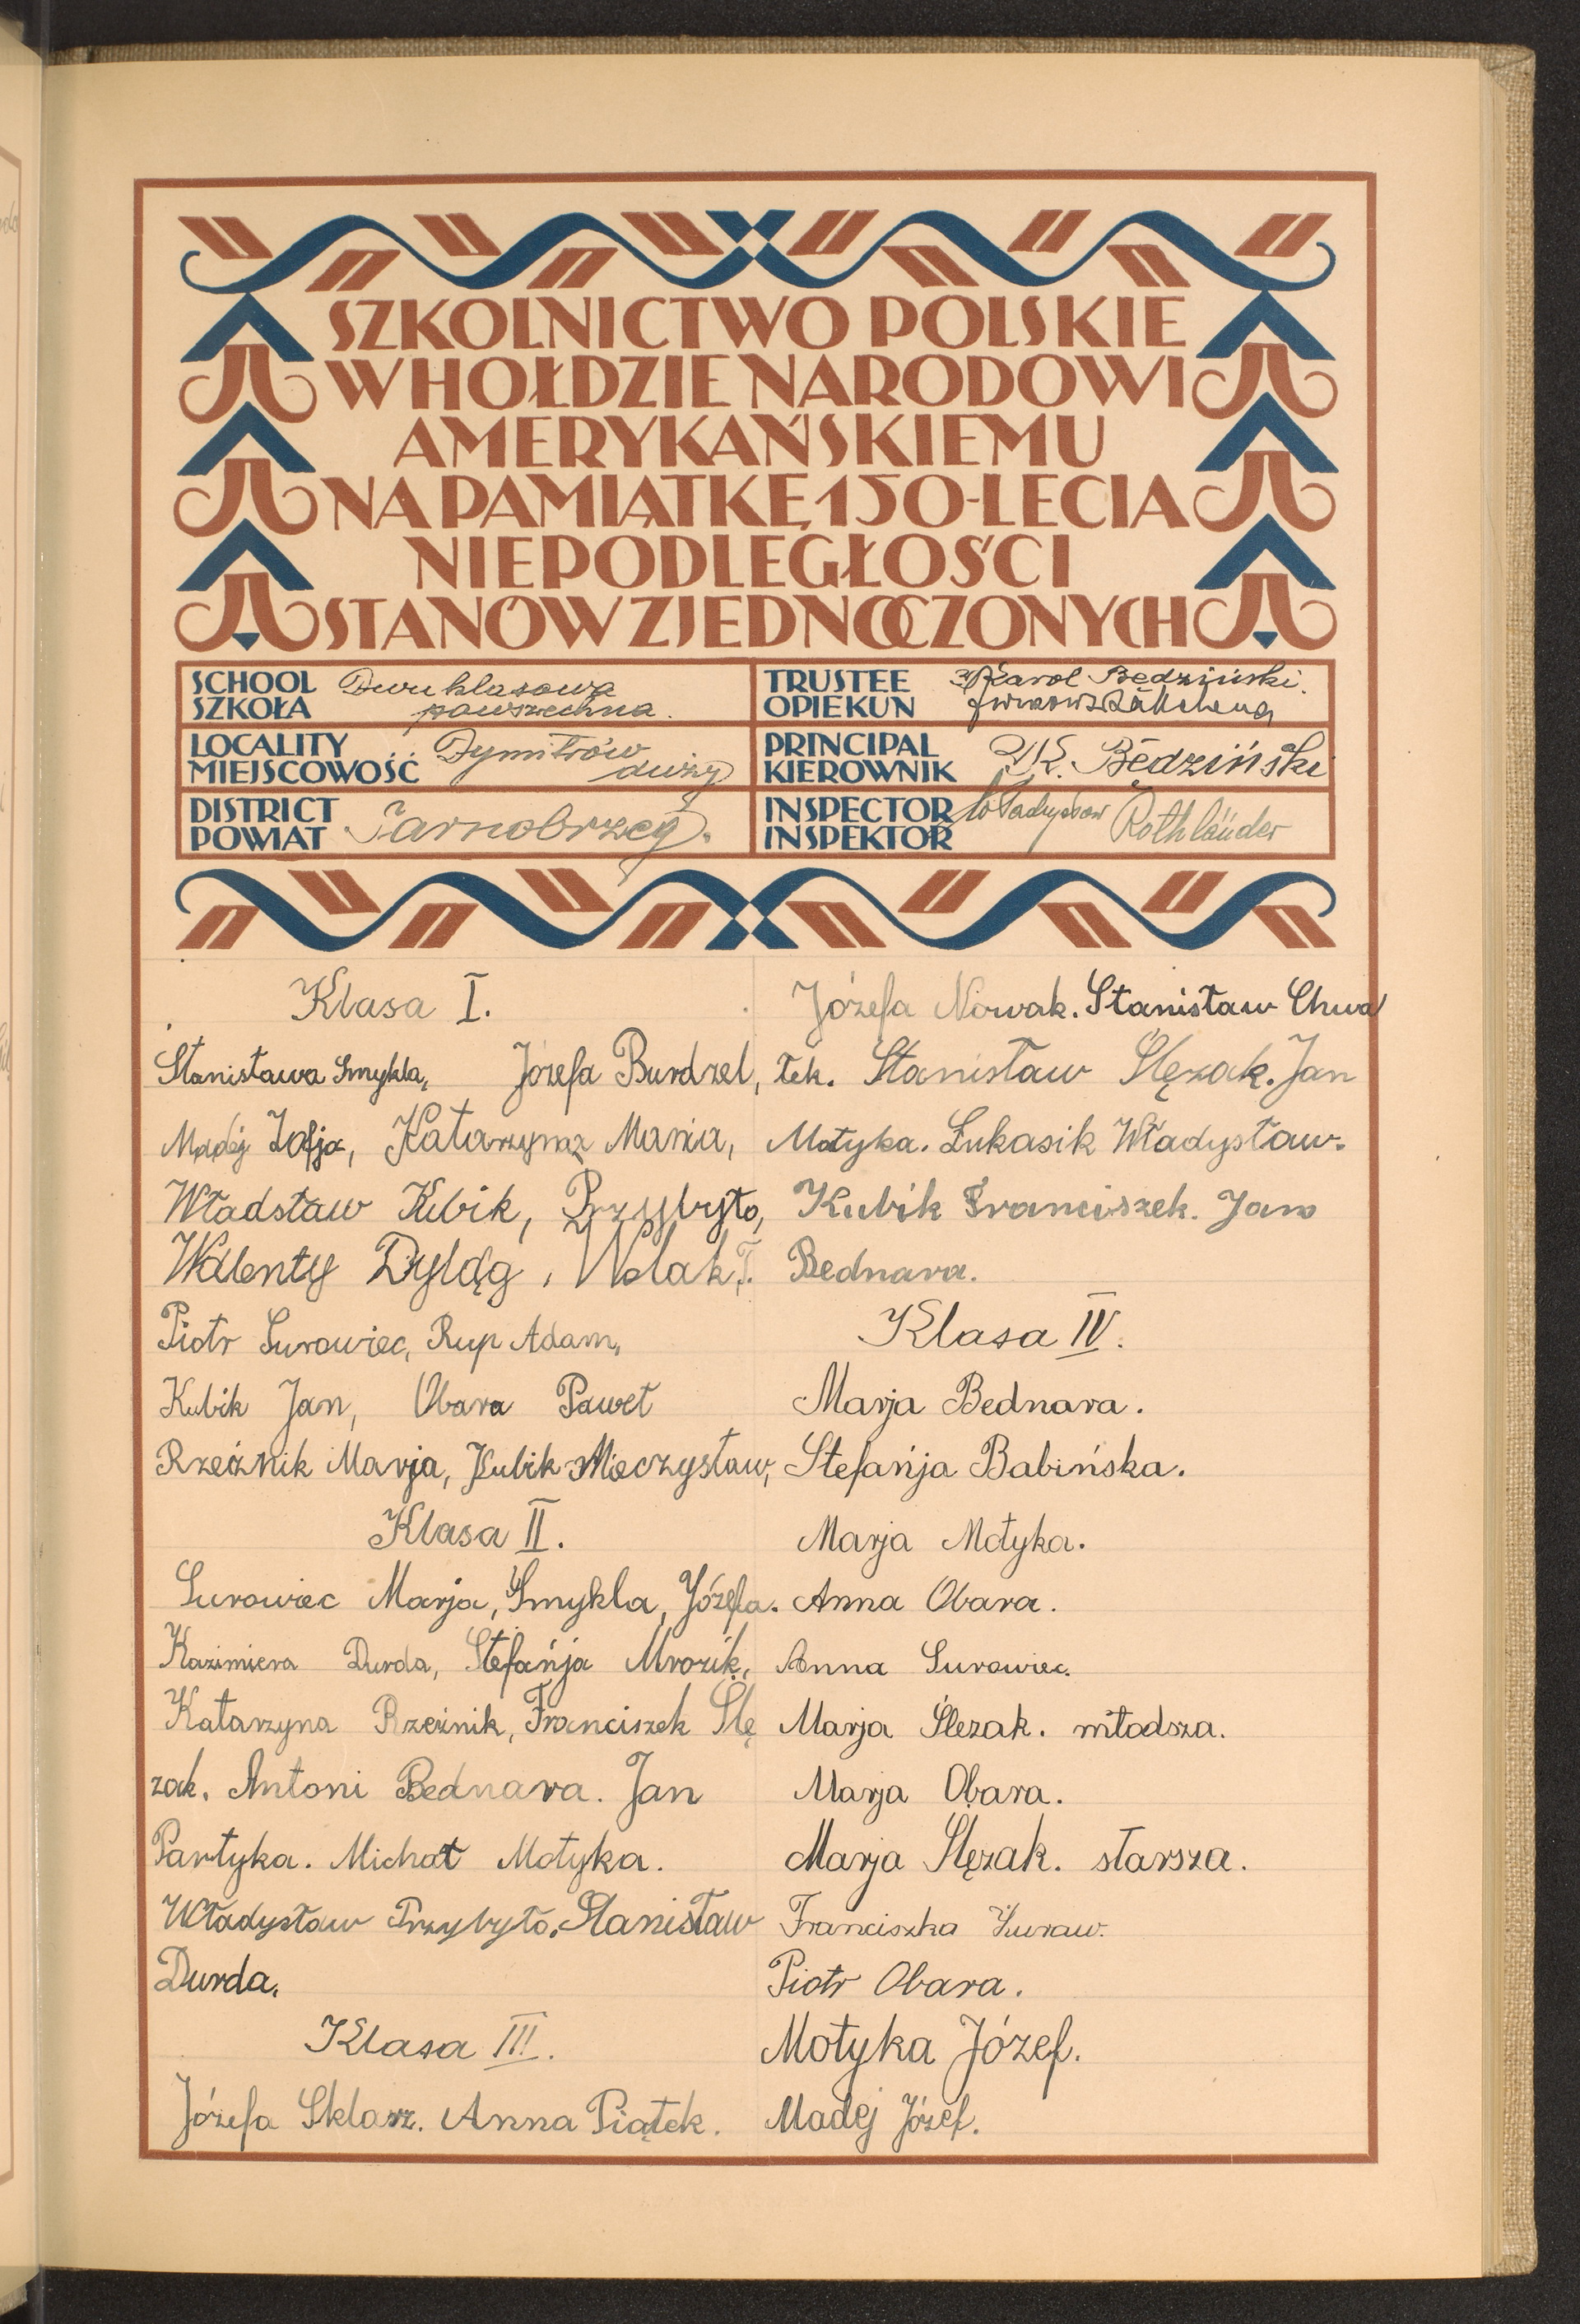 SZKOLNICTWO POLSKIE
W HOŁDZIE NARODOWI
AMERYKAŃSKIEMU
NA PAMIĄTKĘ 150-LECIA
NIEPODLEGŁOŚCI
STANÓW ZJEDNOCZONYCH
SCHOOL
SZKOŁA
Dwuklasowa
powszechna.
TRUSTEE
OPIEKUN
Karol Będziński.
LOCALITY
MIEJSCOWOŚĆ
Dymitrów
duży
PRINCIPAL
KIEROWNIK
K. Będziński
DISTRICT
POWIAT
Tarnobrzeg.
INSPECTOR
INSPEKTOR
Władysław Rothländer
Klasa I.
Stanisława Smykla, Józefa Burdzel,
Madej Zofja, Katarzyna Mania,
Władsław Kubik, Przybyło,
Walenty Dyląg, Wolak T.
Piotr Surowiec, Rup Adam,
Kubik Jan, Obara Paweł
Rzeźnik Marja, Kubik Mieczysław,
Klasa II.
Surowiec Marja, Smykla, Józefa.
Kazimiera Durda, Stefańja Mrozik,
Katarzyna Rzeźnik, Franciszek Ślę
zak. Antoni Bednara. Jan
Partyka. Michał Motyka.
Władysław Przybyło. Stanisław
Durda.
Klasa III.
Józefa Sklarz. Anna Piątek.
Józefa Nowak. Stanisław Chwa
łek. Stanisław Ślęzak. Jan
Motyka. Łukasik Władysław.
Kubik Franciszek. Jan
Bednara.
Klasa IV.
Marja Bednara.
Stefańja Babińska.
Marja Motyka.
Anna Obara.
Anna Surowiec.
Marja Ślezak. młodsza.
Marja Obara.
Marja Ślęzak. starsza.
Franciszka Żuraw.
Piotr Obara.
Motyka Józef.
Madej Józef.